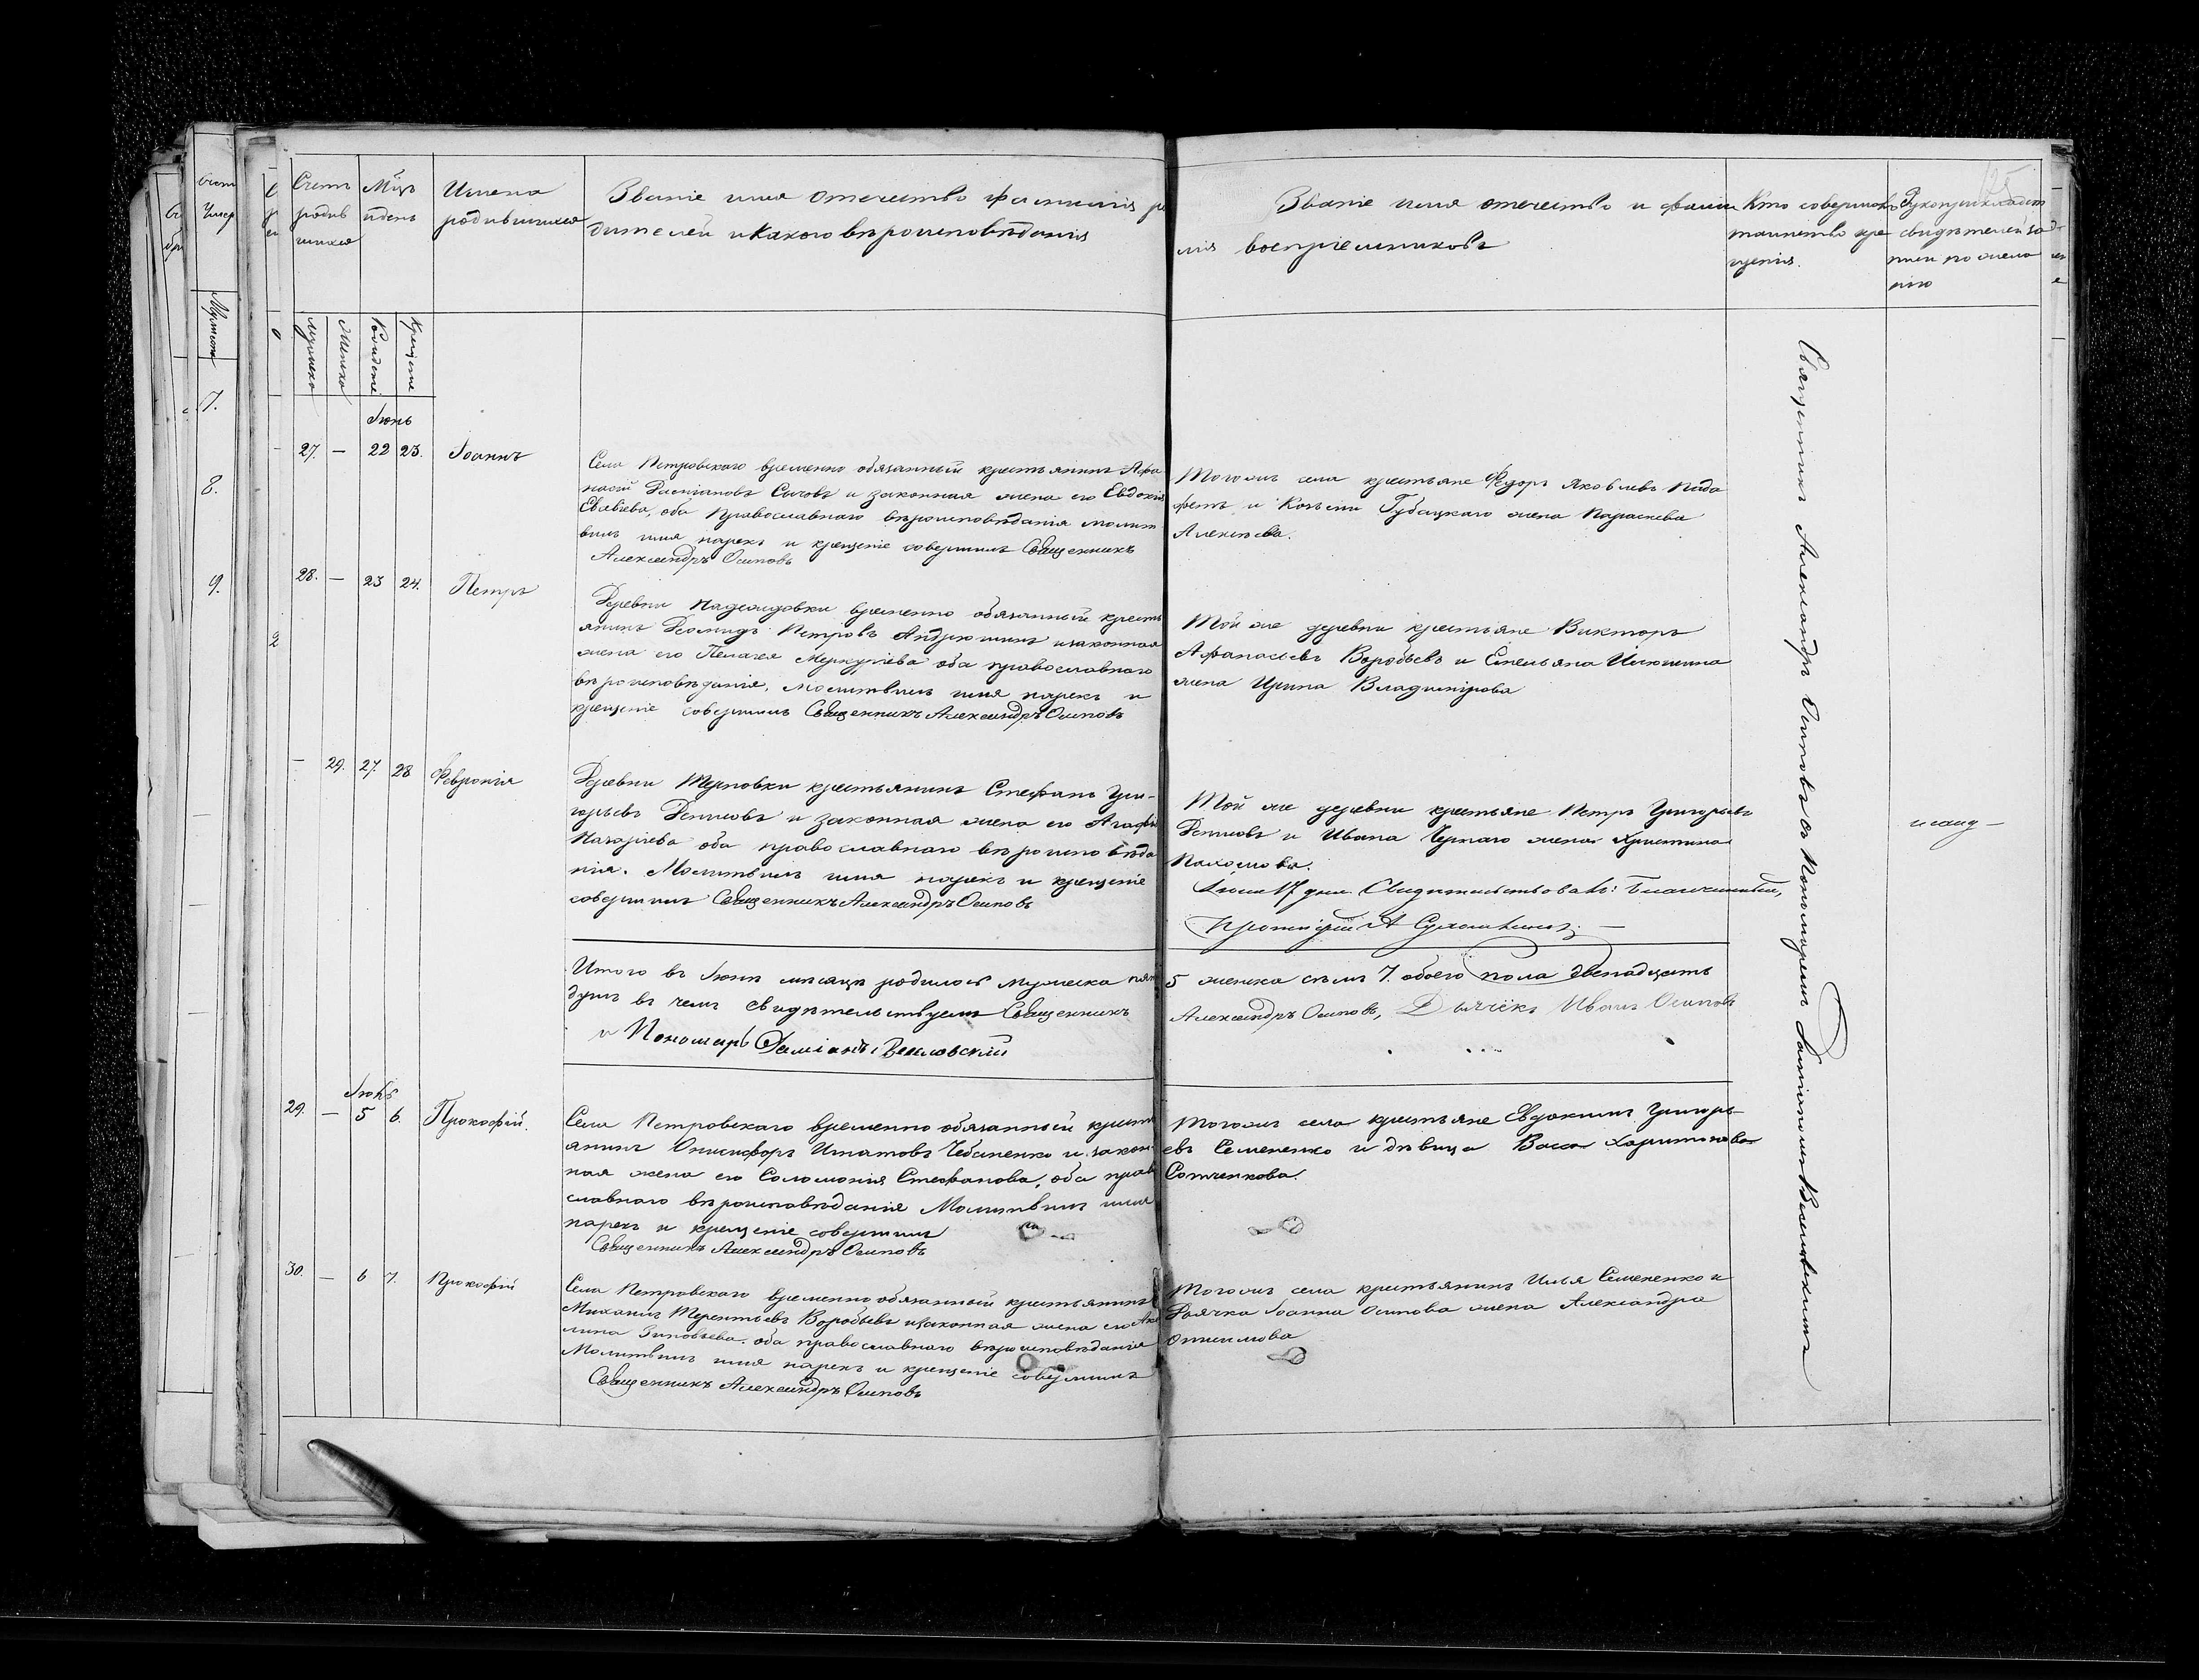 Счетъ родив шихся
Мѣцъ и день
Имена родившихся
Званіе имя отечество и фамилія ро
дителей и какого вѣроисповѣданія
Званіе имя отечество и фами
лія воспріемниковъ
Кто совершалъ
таинство кре
щенія.
Рукоприкладст
свидѣтелей за
писи по жела
нію
Мужеска
Женска
Рожденіе
Крещеніе
Іюнь
27. — 22 23. Іоаннъ
Села Петровскаго временно обязанный крестьянинъ Афа
насій Сычовъ и законная жена его Евдокія
оба Православнаго вѣроисповѣданія молит
вилъ имя нарекъ и крещеніе совершилъ Священникъ
Александръ Осиповъ
Тогожъ села крестьяне Федоръ Яковлевъ
и Губацкаго жена Параскева
Алексѣева.
28. — 23 24. Петръ
Деревни Надеждовки временно обязанный кресть
янинъ Петровъ Андрюшинъ и законная
жена его Пелагея Меркуріева оба православнаго
вѣроисповѣданія, молитвилъ имя нарекъ и
крещеніе совершилъ Священникъ Александръ Осиповъ
Той же деревни крестьяне Викторъ
Афанасьевъ Воробьевъ и Емельяна Илюшина
жена Ирина Владимірова
— 29. 27. 28 Февронія
Деревни Терновки крестьянинъ Стефанъ Гри-
горьевъ Денисовъ и законная жена его Агафія
Назаріева оба православнаго вѣроисповѣда
нія. Молитвилъ имя нарекъ и крещеніе
совершилъ Священникъ Александръ Осиповъ
Той же деревни крестьяне Петръ Григорьевъ
Денисовъ и Ивана Чернаго жена Христина
Пахомова.
Іюля 17 дня. Свидѣтельствовалъ: Благочинный,
Протоіерей А
Итого въ Іюнѣ мѣсяцѣ родилось мужеска пять
5 женска семь 7. обоего пола двенадцать
душъ въ чемъ свидѣтельствуемъ Священникъ
Александръ Осиповъ, Дьячекъ Иванъ Осиповъ
и Пономарь Даміанъ Велиовскій
Іюль
29. — 5 6. Прокофій.
Села Петровскаго временно обязанный кресть
янинъ Онисифоръ Игнатовъ Чебаненко и закон
ная жена его Соломонія Стефанова, оба право
славнаго вѣроисповѣданіе Молитвилъ имя
нарекъ и крещеніе совершилъ
Священникъ Александръ Осиповъ
Тогожъ села крестьяне Евдокимъ Григорь-
евъ Семененко и дѣвица Васса Харитонова
Сотченкова.
30. — 6 7. Прокофій
Села Петровскаго временно обязанный крестьянинъ
Михаилъ Терентьевъ Воробьевъ и законная жена его Аку
лина Зиновьева. оба православнаго вѣроисповѣданія
Молитвилъ имя нарекъ и крещеніе совершилъ
Священникъ Александръ Осиповъ
Тогожъ села крестьянинъ Илья Семененко и
Дьячка Іоанна Осипова жена Александра
Священникъ Александръ Осиповъ съ Пономаремъ Даміаномъ Велиовскимъ